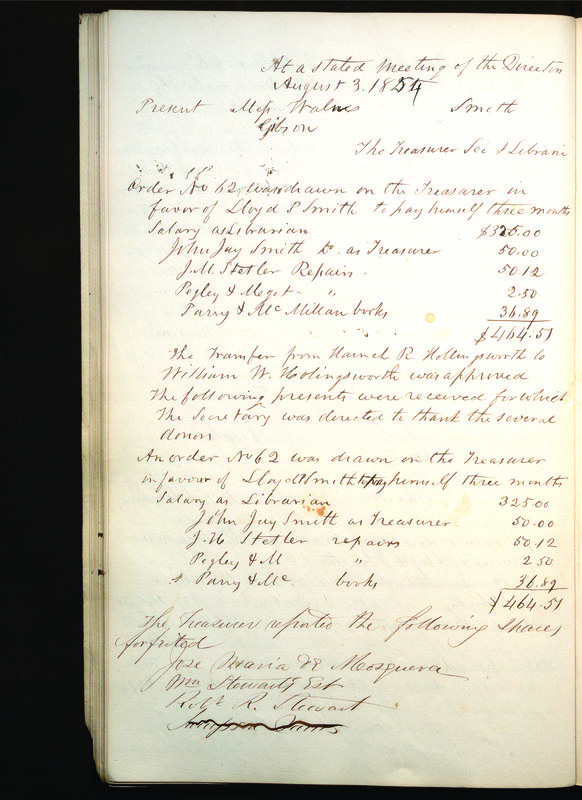 At a stated Meeting of the Directors
August 3. 1854
Present Mess Walnes Smith
Gibson
The Treasurer Sec & Librari
Order No 62 was drawn on the Treasurer in
favor of Lloyd P Smith to pay himself three months
Salary as Librarian $325.00
John Jay Smith Do. as Treasurer 50.00
J.M. Stetler Repairs 50.12
Pegley & Meget " 2.50
Parry & McMillan books 36.89
$464.51
The Transfer from R. Hollingsworth to
William W. Holingsworth was approved
The following presents were received for which
The Secretary was directed to thank the several
donors
An order No 62 was drawn on the Treasurer
in favour of Lloyd P Smith to pay himself three months
Salary as Librarian 325.00
John Jay Smith as Treasurer 50.00
J. Stetler repairs 50.12
Pegley & M " 2.50
Parry & Mc books 36.89
$464.51
The Treasurer reported the following Shares
forfrited
Jose Maria de Mosquera
Wm Stewarts Est
Robt R. Stewart